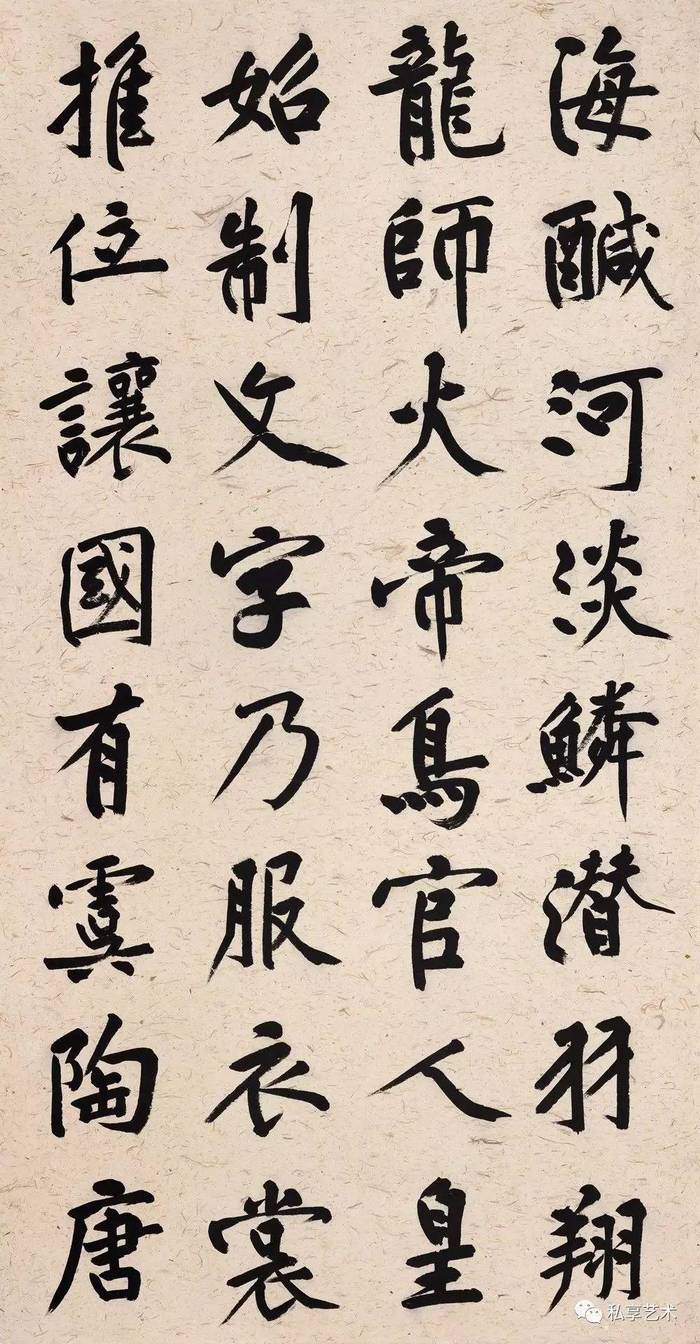 海醎河淡鱗潜羽翔
龍師火帝鳥官人皇
始制文字乃服衣裳
推位讓國有虞陶唐
私享艺术